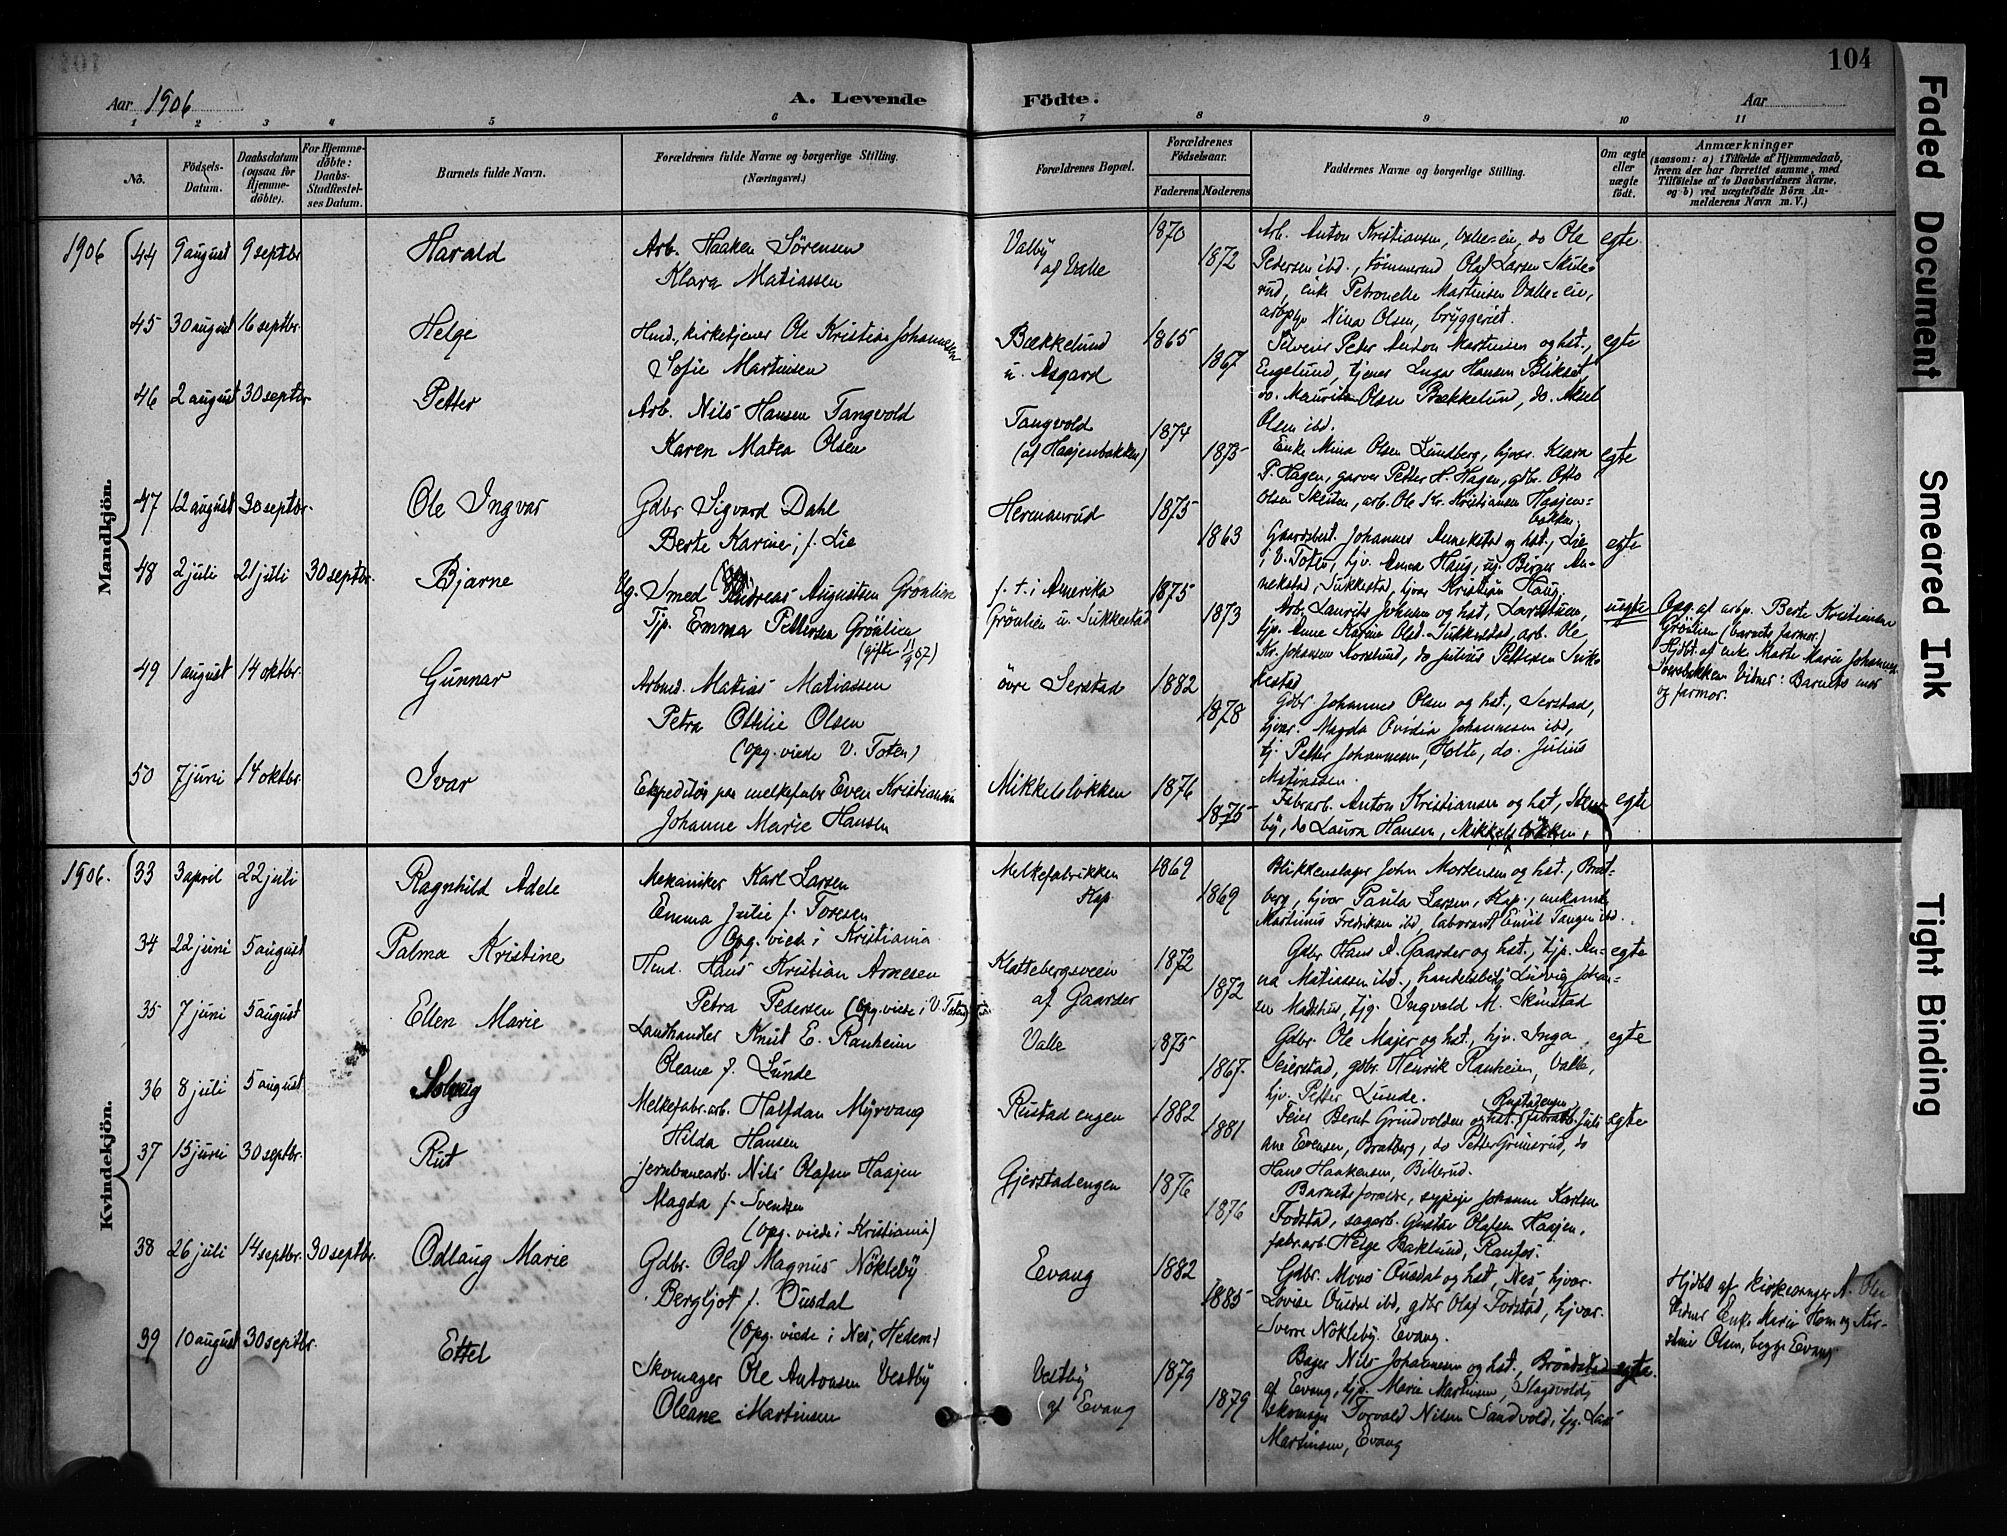 104
Faded Document
Smeared Ink
Tight Binding
Aar 1906
A. Levende Födte.
Aar
1 2 3 4 5 6 7 8 9 10 11
No.
Födsels-Datum.
Daabsdatum (ogsaa for Hjemmedöbte).
For Hjemmedöbte: Daabs-Stadfæstelses Datum.
Barnets fulde Navn.
Forældrenes fulde Navne og borgerlige Stilling. (Næringsvei.)
Forældrenes Bopæl.
Forældrenes Födselsaar.
Faderens Moderens
Faddernes Navne og borgerlige Stilling.
Om ægte eller uægte födt.
Anmærkninger
(saasom: a) i Tilfælde af Hjemmedaab, hvem der har forrettet samme, med Tilföielse af to Daabsvidners Navne, og b) ved uægtefödte Börn Anmelderens Navn m. V.)
Mandkjön.
1906 44 9 august 9 septbr Harald
Arb. Haaken Sørensen
Klara Matiassen
Valby
af Valle
1870
1872
Arb. Anton Kristiansen, Valle-eie, do Ole
Pedersen ibd., tømmermd Olaf Larsen
enke Petronelle Martinsen Valle-eie,
Nina Olsen, bryggeriet.
egte
45 30 august 16 septbr. Helge
Husmd., kirketjener Ole Kristian Johannesen
Sofie Martinsen
Bækkelund
u. Asgard
1865
1867
Peter Anton Martinsen og hst.,
Engelund, tjener Hansen Blikset,
do. Olsen Bækkelund, do. Aksel
Olsen ibd.
egte
46 2 august 30 septbr Petter
Arb. Nils Hansen Tangvold
Karen Matea Olsen
Tangvold
(af Haajenbakken)
1874
1875
Enke Mina Olsen Lundberg, hjvar. Klara
P. Hagen, garver Petter H. Hagen, gdbr. Otto
Olsen Skjelen, arb. Ole Kr. Kristiansen Haajen-
bakken
egte
47 12 august 30 septbr. Ole Ingvar
Gdbr Sigvard Dahl
Berte Karine, f. Lie
Hermanrud
1875
1863
Gaardsbest. Johannes Annekstad og hst., Lie
i V. Toten, hjv. Anna Haug, ug. Birger An-
nekstad, Sukkestad, hjvar Kristian Haug.
egte
48 2 juli 21 juli 30 septbr. Bjarne
Ug. Smed Andreas Augustsen Grönlien
Tjp. Emma Pettersen Grönlien
f. t. i Amerika
Grönlien u. Sukkestad
1875
1873
Arb. Laurits Johnsen og hst.,
tjp. Anne Karine Olsd. Sukkestad, arb. Ole
Kr. Johansen Korslund, do Julius Pettersen Suk-
kestad
uegte
Opg. af arbp. Berte Kristiansen
Grönlien (barnets farmor.)
Hjdbt af enke Marte Marie Johannes.
Vidner: Barnets mor
og farmor.
49 1 august 14 oktbr. Gunnar
Arbmd. Matias Matiassen
Petra Othilie Olsen
(Opg. viede V. Toten)
övre Serstad
1882
1878
Gdbr. Johannes Olsen og hst., Serstad,
hjvar. Magda Ovidia Johannesen ibd,
tj. Petter Johannesen, Holte, do. Julius
Matiassen.
50 7 juni 14 oktbr. Ivar
Ekspeditör paa melkefabr Even Kristiansen
Johanne Marie Hansen
Mikkelslökken
1876
1875
Fabrarb. Anton Kristiansen og hst, Sten-
by, do Laura Hansen, Mikkelslökken,
egte
Kvindekjön.
1906. 33 3 april 22 juli Ragnhild Adele
Mekaniker Karl Larsen
Emma Julie f. Toresen
Opg. viede i Kristiania.
Melkefabrikken
Kap
1869
1869
Blikkenslager John Mortensen og hst., Brat-
berg, hjvar Paula Larsen, Kap, mekaniker
Martinus Fredriksen ibd, laborant Emil Tangen ibd.
34 22 juni 5 august Palma Kristine
Husmd. Hans Kristian Arnesen
Petra Pedersen (Opg. viede i V. Toten)
Klattebergsveien
af Gaarder
1872
1872
Gdbr Hans A. Gaarder og hst., tjp. An-
na Matiassen ibd., handelsbetj Ludvig Johan-
sen Madshus, tjg. Ingvald M. Skinstad
egte
35 7 juni 5 august Ellen Marie
Landhandler Knut E. Ranheim
Oleane f. Lunde
Valle
1875
1867
Gdbr Ole Majer og hst., hjv. Inga
Seierstad, gdbr. Henrik Ranheim, Valle,
hjv. Petter Lunde.
egte
36 8 juli 5 august Solveig
Melkefabr. arb. Halfdan Myrvang
Hilda Hansen
Rustadengen
1882
1881
Feier Bernt Grindvolden og hst., Rustadengen, fabrarb. Juli
ane Evensen, Bratberg, do Petter Grimsrud, do
Hans Haakensen, Billerud.
egte
37 15 juni 30 septbr. Rut
Jernbanearb. Nils Olafsen Haajen
Magda f. Svendsen
(Opg. viede i Kristiania)
Gjerstadengen
1876
1876
Barnets forældre, sypige Johanne Karlsen
Fodstad, sagarb. Gustav Olafsen Haajen,
fabr.arb Helge Baklund, Raufos.
38 26 juli 14 septbr. 30 septbr. Odlaug Marie
Gdbr. Olaf Magnus Nökleby
Bergljot f. Ousdal
(Opg. viede i Nes, Hedem.)
Evang
1882
1885
Gdbr. Mons Ousdal og hst, Nes, hjvar.
Lovise Ousdal ibd, gdbr Olaf Fodstad, hjvar.
Sverre Nökleby. Evang.
Hjdbt af kirkesanger A. Olsen
Vidner Enke Marie Hom og Kir-
stine Olsen, begge Evang
39 10 august 30 septbr. Ettel
Skomager Ole Antonsen Vestby
Oleane Martinsen
Vestby
(af Evang
1879
1879
Bager Nils Johannesen og hst, Bröndstad
af Evang, tjp. Marie Martinsen, Slagsvold,
skomager Torvald Nilsen Sandvold, tjg.
Martinsen, Evang
egte.